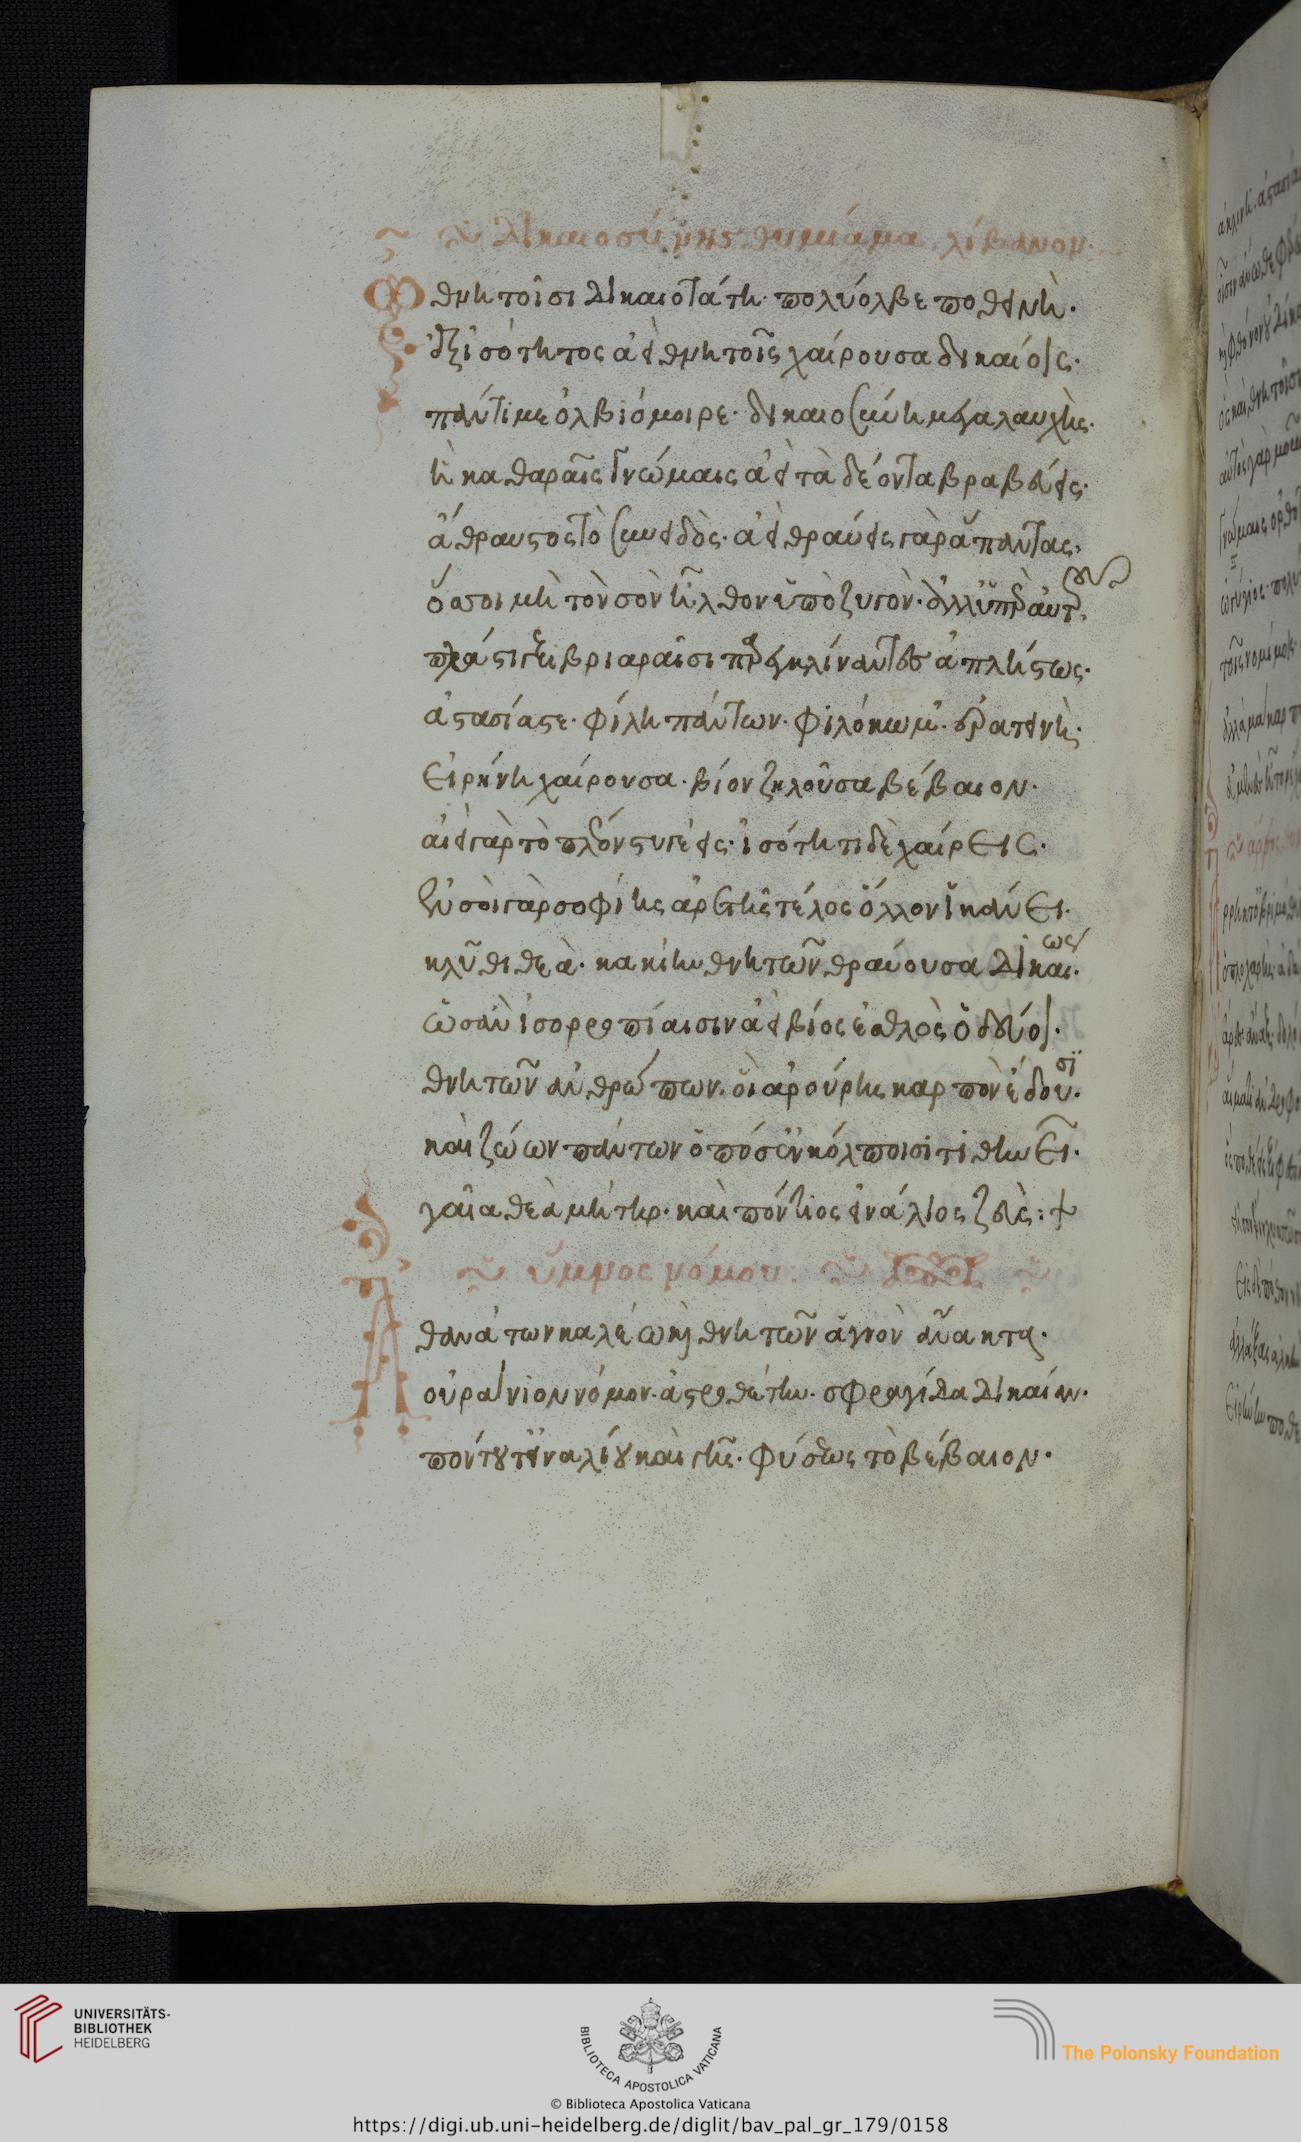 Δικαιοσύνης θυμίαμα λίβανον.
Ὦ θνητοῖσι δικαιοτάτη· πολύολβε ποθεινή·
ἐξ ἰσότητος ἀεὶ θνητοῖς χαίρουσα δικαίοις·
πάντιμε ὀλβιόμοιρε· δικαιοσύνη μεγαλαυχής·
ἣ καθαραῖς γνώμαις ἀεὶ τὰ δέοντα βραβεύεις·
ἄθραυστος τὸ συνειδὸς· ἀεὶ θραύεις γὰρ ἅπαντας·
ὅσοι μὴ τὸν σὸν ἦλθον ὑπὸ ζυγὸν·
πλάστιγξι βριαραῖσι παρεγκλίναντες ἀπλήστως·
ἀστασίαστε· φίλη πάντων· φιλόκωμ· ἐρατεινὴ·
Εἰρήνη χαίρουσα· βίον ζηλοῦσα βέβαιον·
αἰεὶ γὰρ τὸ πλέον στυγέεις· ἰσότητι δὲ χαίρεις·
ἐν σοὶ γὰρ σοφίης ἀρετῆς τέλος ὄλλον ἱκάνει·
κλῦθι θεὰ· κακίην θνητῶν θραύουσα δικαίως·
ὡς ἂν ἰσορροπίαισιν ἀεὶ βίος ἐσθλὸς ὁδεύοι·
θνητῶν ἀνθρώπων· οἳ ἀρούρης καρπὸν ἔδουσι·
καὶ ζώων πάντων ὁπόσ' ἐν κόλποισι τιθηνεῖ·
γαῖα θεὰ μήτηρ· καὶ πόντιος εἰνάλιος ζεὺς:+
ὕμνος νόμου:
Ἀθανάτων καλέω καὶ θνητῶν ἁγνὸν ἄνακτα·
οὐράνιον νόμον· ἀστροθέτην· σφραγίδα δικαίαν·
πόντου τ' εἰναλίου καὶ γῆς· φύσεως τὸ βέβαιον·
UNIVERSITÄTS-
BIBLIOTHEK
HEIDELBERG
BIBLIOTECA APOSTOLICA VATICANA
The Polonsky Foundation
© Biblioteca Apostolica Vaticana
https://digi.ub.uni-heidelberg.de/diglit/bav_pal_gr_179/0158